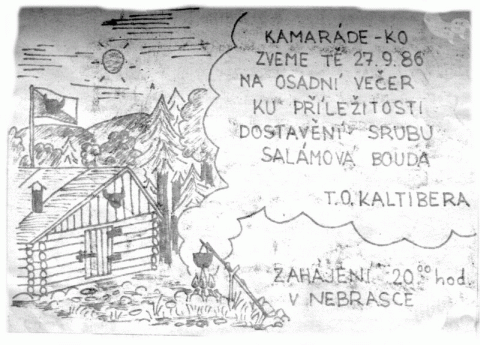 KAMARÁDE-KO
ZVEME TĚ 27.9.86
NA OSADNÍ VEČER
KU PŘÍLEŽITOSTI
DOSTAVĚNÍ SRUBU
SALÁMOVÁ BOUDA
T.O.KALTIBERA
ZAHÁJENÍ 20⁰⁰ hod.
V NEBRASCE